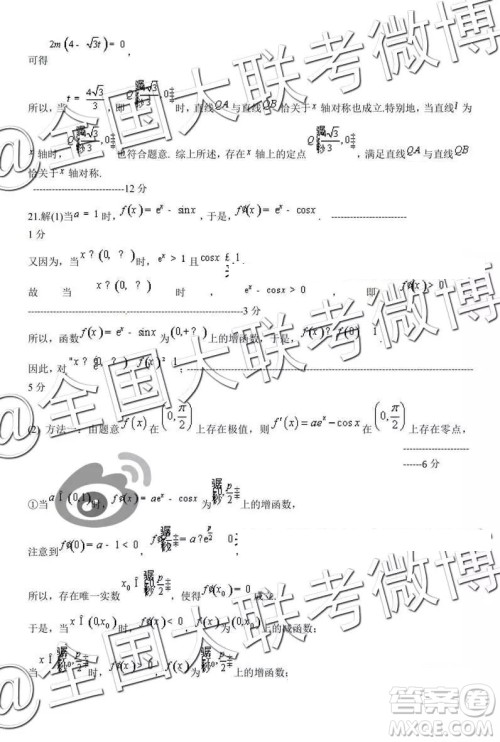 2m(4-√3t)=0,
可得
所以,当 t=4√3/3 时,即 Q 4√3/3,0 时,直线QA与直线QB恰关于x轴对称也成立.特别地,当直线l为
x轴时,Q 4√3/3,0 也符合题意. 综上所述,存在x轴上的定点 Q 4√3/3,0 ,满足直线QA与直线QB
恰关于x轴对称.
---------------------------12 分
21.解(1)当a=1时,f(x)=e^x-sinx,于是,f'(x)=e^x-cosx. ------------------------
1 分
又因为,当 x?(0, ?) 时,e^x>1 且 cosx £ 1.
故当 x?(0, ?) 时,e^x-cosx>0,即 f¢(x)>0.
---------------------------------------------------------3 分
所以,函数 f(x)=e^x-sinx 为 (0,+?) 上的增函数,于是,f(x)? f(0) 1.
因此,对 "x?(0, ?) f(x)? 1.
5 分
(2) 方法一:由题意 f(x) 在 (0,π/2) 上存在极值,则 f'(x)=ae^x-cosx 在 (0,π/2) 上存在零点,
------6 分
①当a Î (0,1)时,f¢(x)=ae^x-cosx 为 上的增函数,
注意到 f¢(0)=a-1<0,
所以,存在唯一实数 x0 Î ,使得 f¢(x0)=0 成立.
于是,当 x Î (0,x0) 时, 上的减函数;
当 时, 上的增函数;
@全国大联考微博
@全国大联考微博
@全国大联考微博
答案圈
MXQE.COM